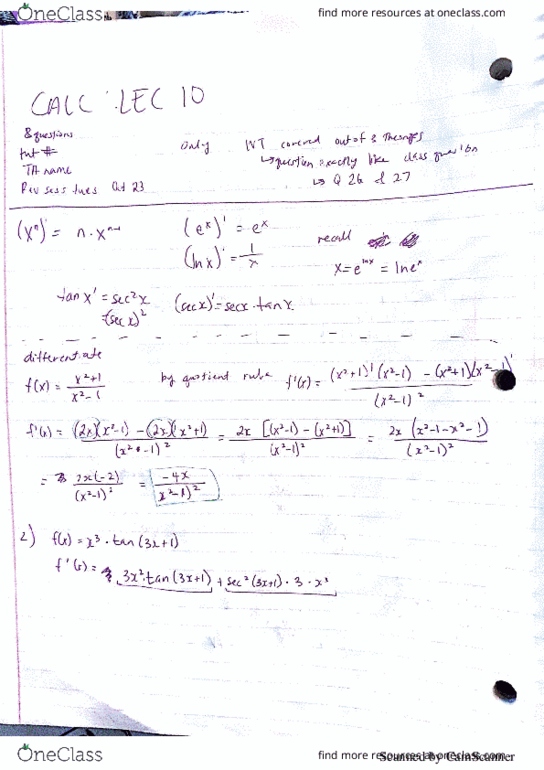 OneClass
find more resources at oneclass.com
CALC LEC 10
8 questions
tut #
TA name
Rev sess tues Oct 23
only IVT covered out of 3
↳ question exactly like class question
↳ Q 26 & 27
(xⁿ)' = n·xⁿ⁻¹
(eˣ)' = eˣ
(ln x)' = 1/x
recall
x = e^(lnx) = lneˣ
tan x' = sec²x
=(sec x)²
(sec x)' = sec x · tan x
differentiate
f(x) = (x²+1)/(x²-1)
by quotient rule
f'(x) = ((x²+1)'(x²-1) - (x²+1)(x²-1)')/(x²-1)²
f'(x) = ((2x)(x²-1) - (2x)(x²+1))/(x²-1)² = 2x[(x²-1) - (x²+1)]/(x²-1)² = 2x(x²-1-x²-1)/(x²-1)²
= 2x(-2)/(x²-1)² = -4x/(x²-1)²
2) f(x) = x³ · tan(3x+1)
f'(x) = 3x²·tan(3x+1) + sec²(3x+1) · 3 · x³
OneClass
find more resources at oneclass.com
Scanned by CamScanner